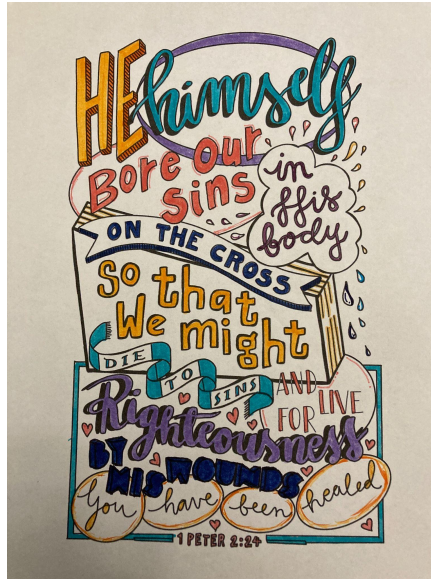 HE himself
Bore our
sins
in
His
body
ON THE CROSS
So that
We might
DIE TO SINS
AND LIVE
FOR
Righteousness
BY HIS WOUNDS
You have been healed
1 PETER 2:24